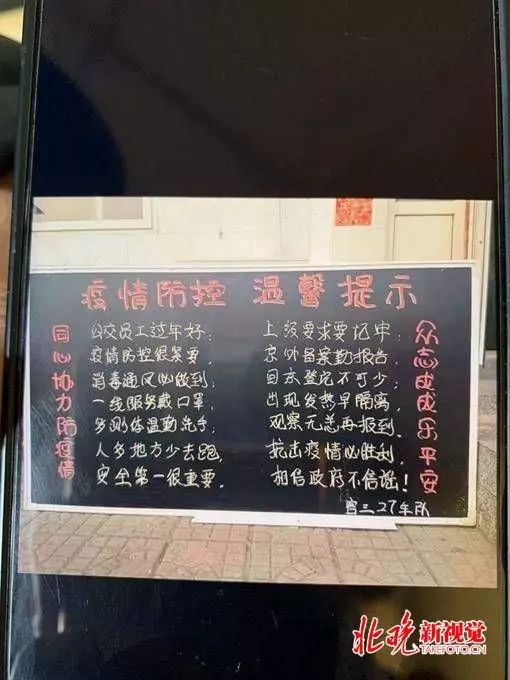 疫情防控 温馨提示
同心协力防疫情
公交员工过年好；
疫情防控很紧要，
消毒通风必做到；
一线服务戴口罩，
多测体温勤洗手；
人多地方少去跑，
安全第一很重要。
上级要求要记牢；
京外各案勤报告
回京登记不可少；
出现发热早隔离，
观察无恙再报到。
抗击疫情必胜利，
相信政府不信谣！
众志成城乐平安
官三 27车队
北晚新视觉
TAKEFOTO.CN